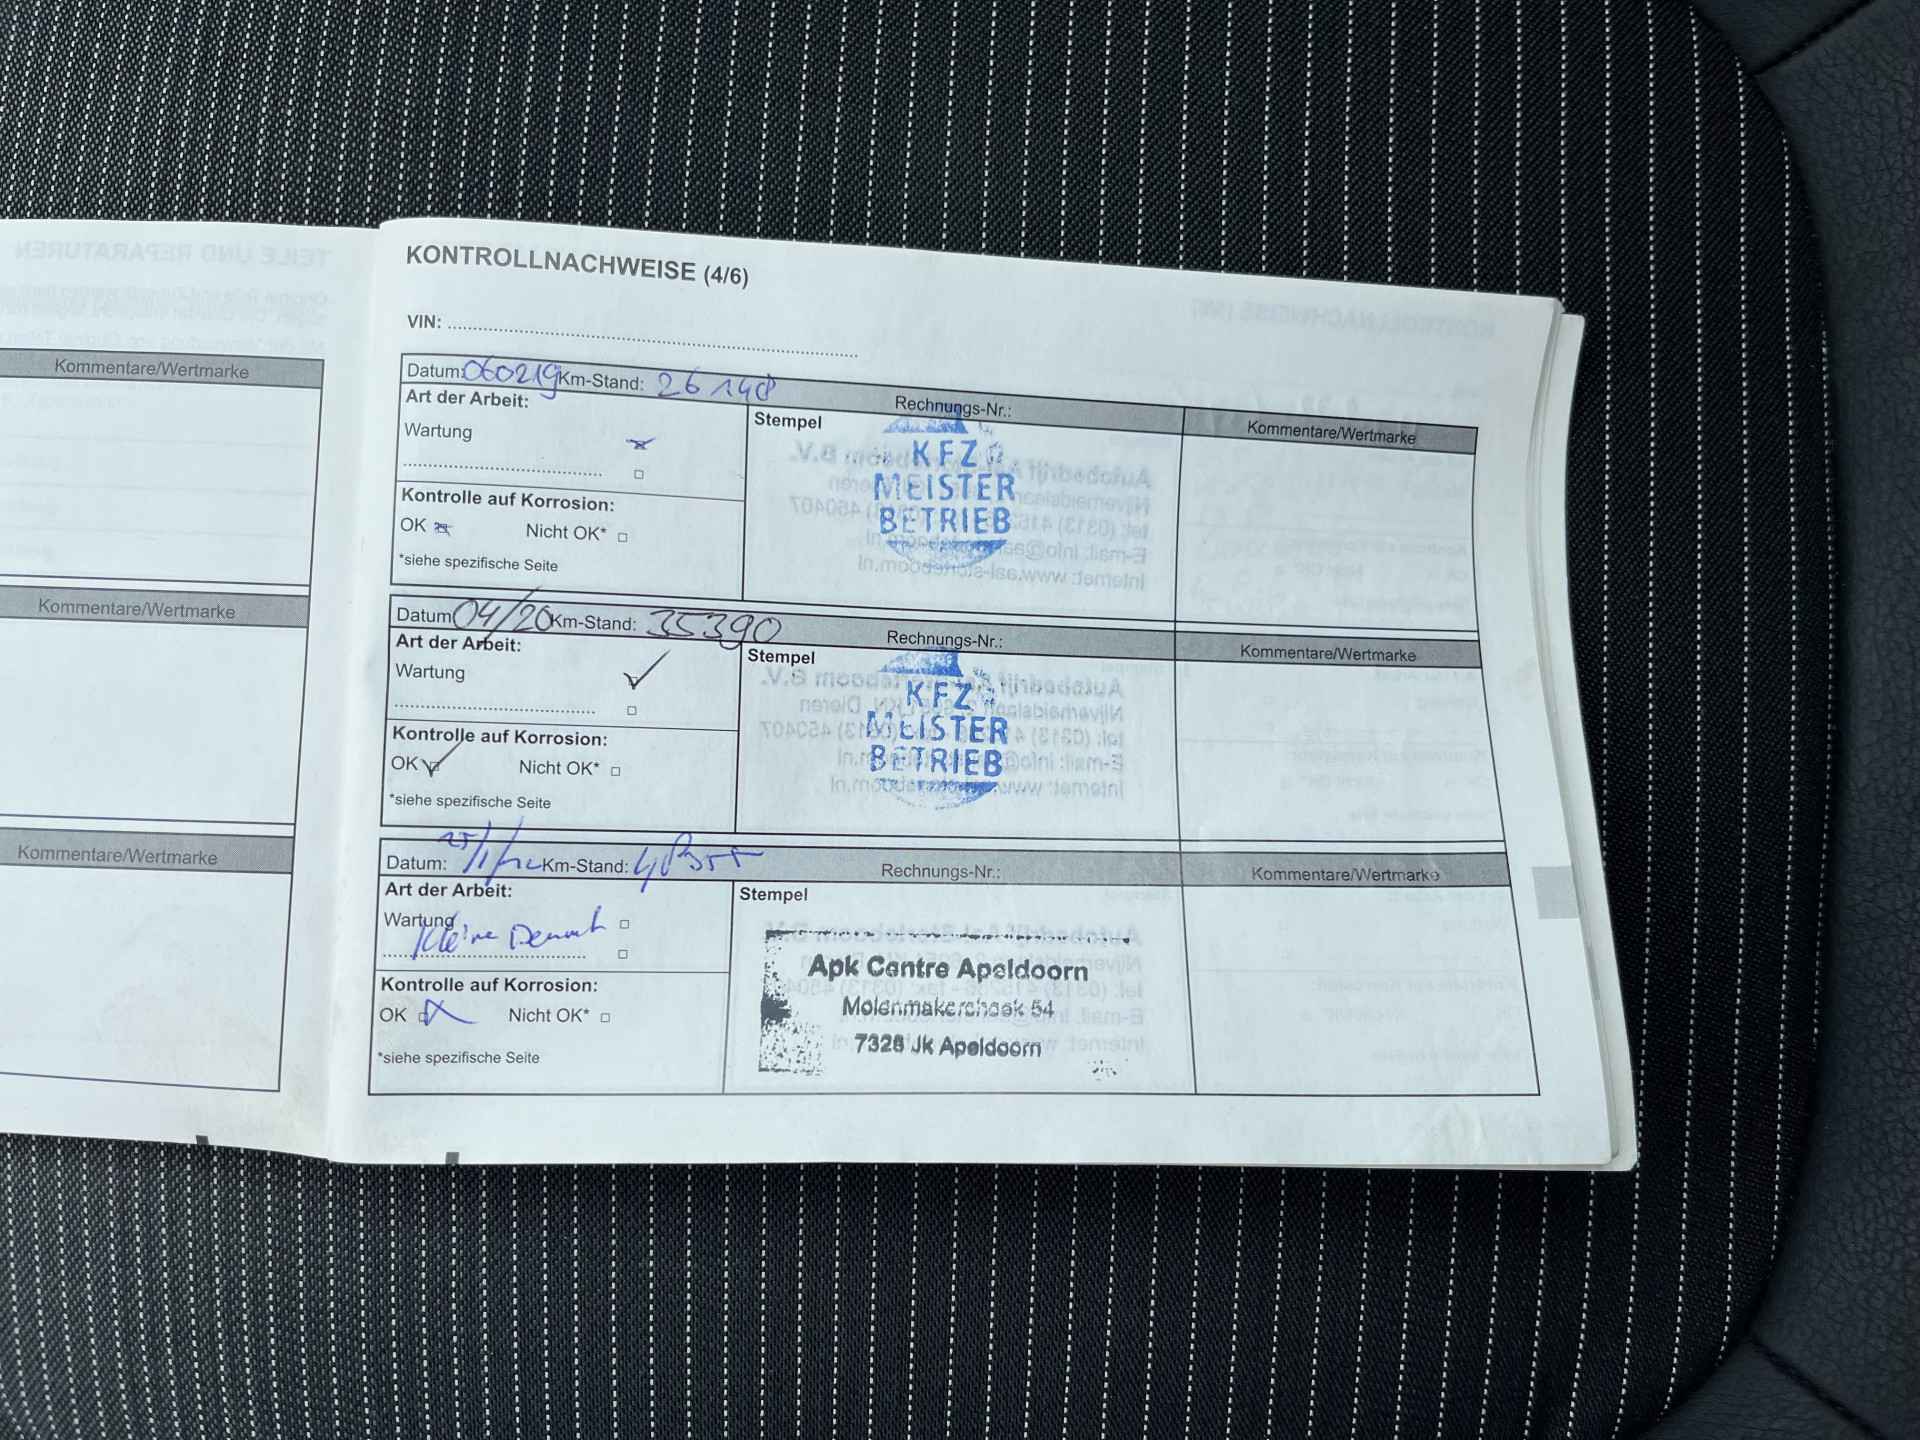 KONTROLLNACHWEISE (4/6)
VIN:
Datum: 060219 Km-Stand: 26148 Rechnungs-Nr.: Kommentare/Wertmarke
Art der Arbeit:
Stempel
Wartung
Kontrolle auf Korrosion:
OK Nicht OK*
*siehe spezifische Seite
KFZ
MEISTER
BETRIEB
Datum 04/20 Km-Stand: 35390 Rechnungs-Nr.: Kommentare/Wertmarke
Art der Arbeit:
Stempel
Wartung
Kontrolle auf Korrosion:
OK Nicht OK*
*siehe spezifische Seite
KFZ
MEISTER
BETRIEB
Datum: Km-Stand: Rechnungs-Nr.: Kommentare/Wertmarke
Art der Arbeit:
Stempel
Wartung
Kleine
Kontrolle auf Korrosion:
OK Nicht OK*
*siehe spezifische Seite
Apk Centre Apeldoorn
Molenmakershoek 54
7328 Jk Apeldoorn
TEILE UND REPARATUREN
Kommentare/Wertmarke
Kommentare/Wertmarke
Kommentare/Wertmarke